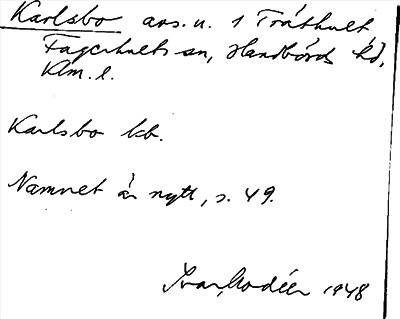 Karlsbo avs. u. 1 Tråthult
Fagerhults sn, Handbörds hd,
Klm. l.
Karlsbo kb.
Namnet är nytt, s. 49.
Ivar Modéer 1948